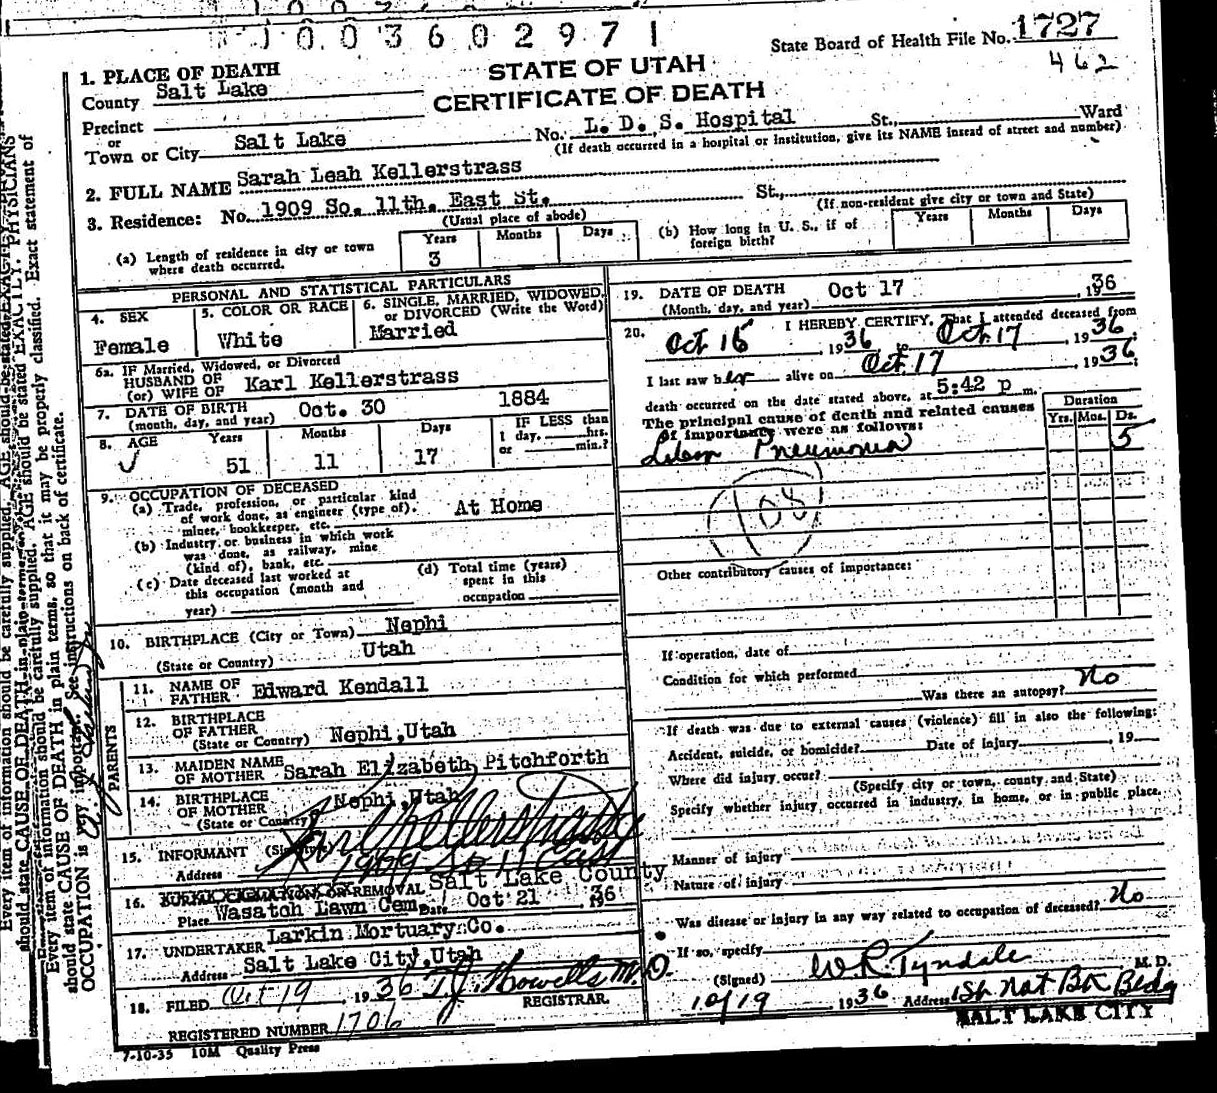 1003602971
State Board of Health File No. 1727
462
STATE OF UTAH
CERTIFICATE OF DEATH
1. PLACE OF DEATH
County Salt Lake
Precinct
or
Town or City Salt Lake No. L. D. S. Hospital St., Ward
(If death occurred in a hospital or institution, give its NAME insead of street and number)
2. FULL NAME Sarah Leah Kellerstrass
3. Residence: No. 1909 So. 11th. East St. St.,
(Usual place of abode) (If non-resident give city or town and State)
(a) Length of residence in city or town where death occurred. Years 3 Months Days
(b) How long in U. S., if of foreign birth? Years Months Days
PERSONAL AND STATISTICAL PARTICULARS
4. SEX Female
5. COLOR OR RACE White
6. SINGLE, MARRIED, WIDOWED, or DIVORCED (Write the Word) Married
6a. IF Married, Widowed, or Divorced
HUSBAND OF
(or) WIFE OF Karl Kellerstrass
7. DATE OF BIRTH (month, day, and year) Oct. 30 1884
8. AGE Years 51 Months 11 Days 17
IF LESS than
1 day, hrs.
or min.?
9. OCCUPATION OF DECEASED
(a) Trade, profession, or particular kind
of work done, as engineer (type of),
miner, bookkeeper, etc. At Home
(b) Industry or business in which work
was done, as railway, mine
(kind of), bank, etc.
(c) Date deceased last worked at
this occupation (month and
year)
(d) Total time (years)
spent in this
occupation
10. BIRTHPLACE (City or Town) Nephi
(State or Country) Utah
PARENTS
11. NAME OF FATHER Edward Kendall
12. BIRTHPLACE OF FATHER
(State or Country) Nephi,Utah
13. MAIDEN NAME OF MOTHER Sarah Elizabeth Pitchforth
14. BIRTHPLACE OF MOTHER
(State or Country) Nephi,Utah
15. INFORMANT Karl Kellerstrass
Address 1909 So 11 East
16. BURIAL CREMATION OR REMOVAL Salt Lake County
Place Wasatch Lawn Cem. Date Oct 21 1936
17. UNDERTAKER Larkin Mortuary Co.
Address Salt Lake City,Utah
18. FILED Oct 19, 1936 T. J. Howells M.D.
REGISTRAR.
REGISTERED NUMBER 1706
7-10-35 10M Quality Press
19. DATE OF DEATH Oct 17 1936
(Month, day, and year)
20. I HEREBY CERTIFY, That I attended deceased from
Oct 15, 1936 to Oct 17, 1936
I last saw her alive on Oct 17, 1936;
death occurred on the date stated above, at 5:42 p m.
The principal cause of death and related causes
of importance were as follows:
Duration
Yrs. Mos. Ds.
Lobar Pneumonia 5
108
Other contributory causes of importance:
If operation, date of
Condition for which performed
Was there an autopsy? No
If death was due to external causes (violence) fill in also the following:
Accident, suicide, or homicide? Date of injury , 19
Where did injury occur?
(Specify city or town, county and State)
Specify whether injury occurred in industry, in home, or in public place.
Manner of injury
Nature of injury
Was disease or injury in any way related to occupation of deceased? No
If so, specify
(Signed) W. R. Tyndale M. D.
10/19 1936 Address 1St Nat Bk Bldg
SALT LAKE CITY
Every item of information should be carefully supplied. AGE should be stated EXACTLY. PHYSICIANS
should state CAUSE OF DEATH in plain terms, so that it may be properly classified. Exact statement of
OCCUPATION is very important. See instructions on back of certificate.